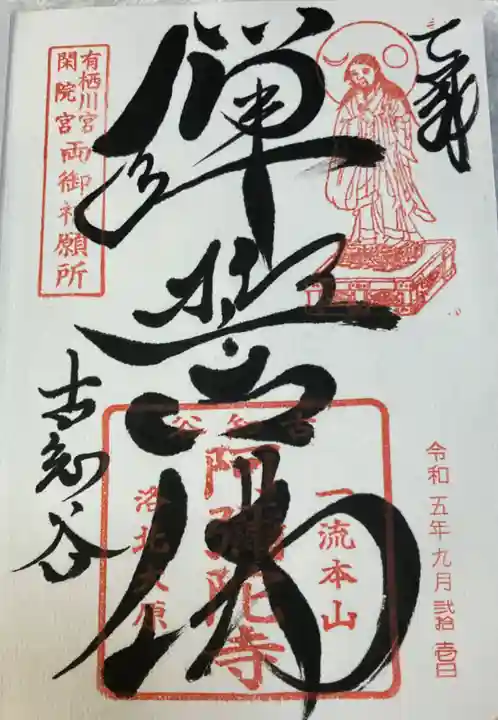 奉拝
彈誓佛
古知谷
有栖川宮
閑院宮
両御祈願所
古知谷
一流本山
阿彌陀寺
洛北大原
令和五年九月貳拾壹日